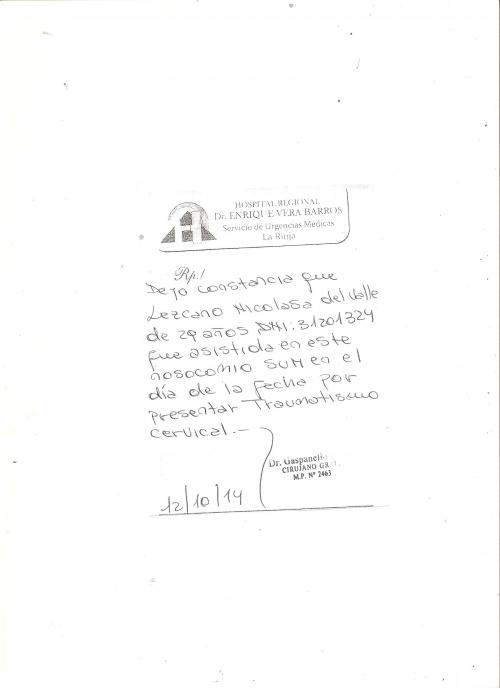 HOSPITAL REGIONAL
Dr. ENRIQUE VERA BARROS
Servicio de Urgencias Medicas
La Rioja
Rp./
Dejo constancia que
Lezcano Nicolasa del Valle
de 29 años DNI: 31201324
fue asistida en este
nosocomio SUM en el
día de la fecha por
presentar Traumatismo
cervical.-
Dr. Gaspanell
CIRUJANO GR
M.P. Nº 2463
12/10/14